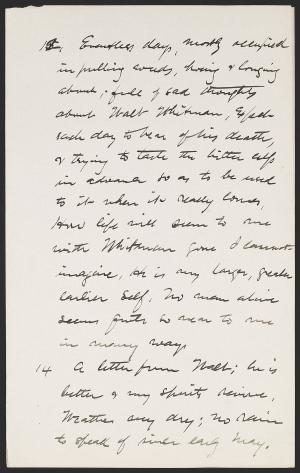 13. Eventless days, mostly occupied
in pulling weeds, hoeing & lounging
about; full of sad thoughts
about Walt Whitman, Expect
each day to hear of his death,
& trying to taste the bitter cup
in advance so as to be used
to it when it really comes,
How life will seem to me
with Whitman gone I cannot
imagine, He is my larger, greater
earlier self. No man alive
seems quite so near to me
in many ways
14 A letter from Walt; he is
better & my spirits revive,
Weather very dry; no rain
to speak of since early May.